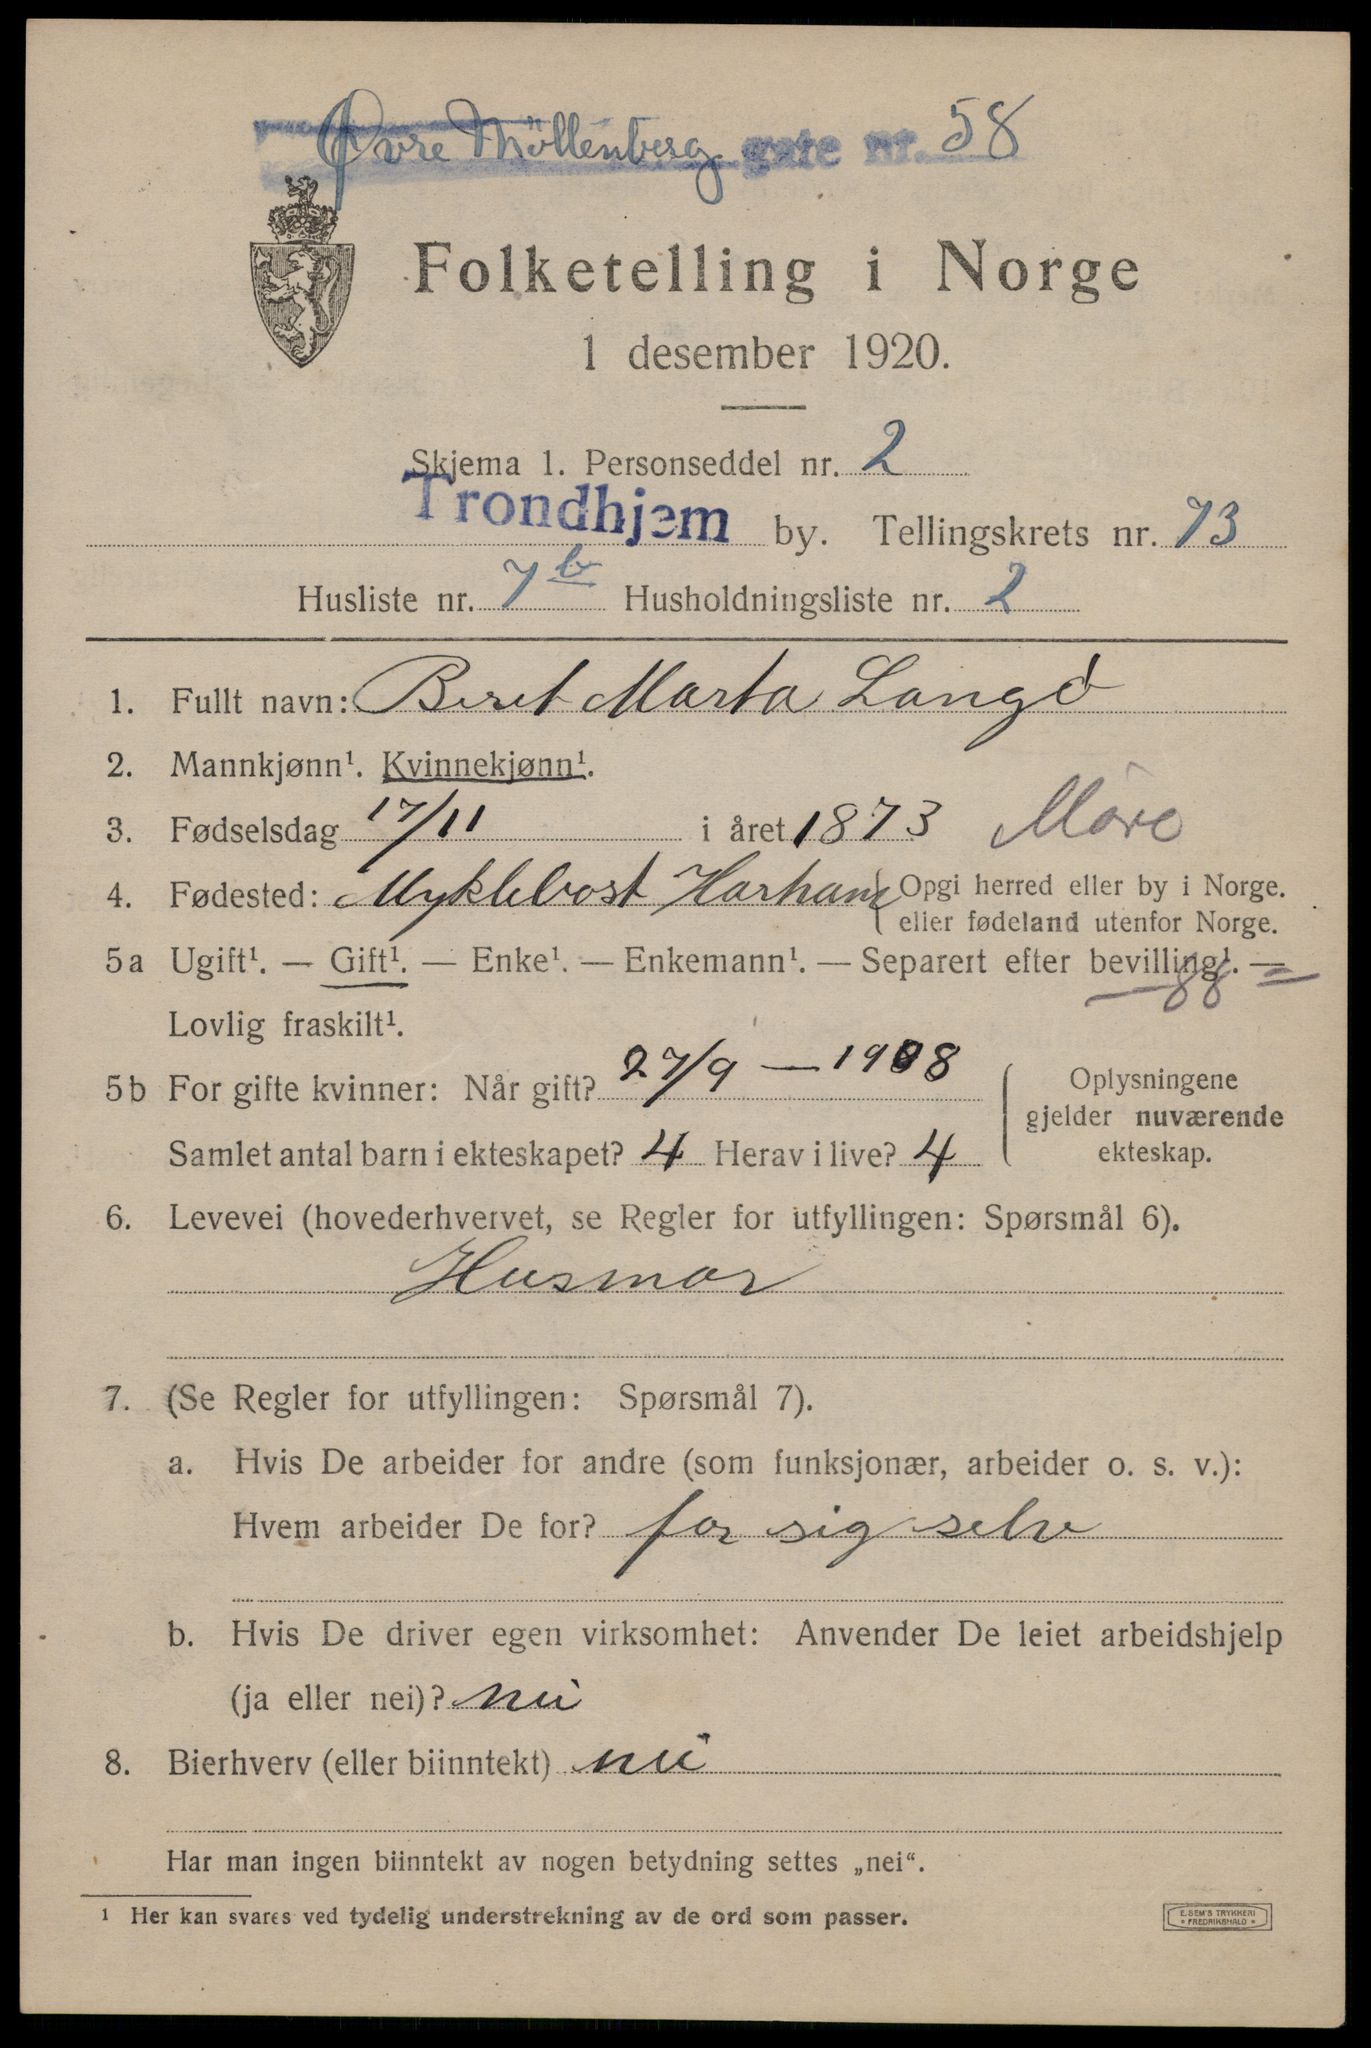 Øvre Möllenberg gate nr. 58
Folketelling i Norge
1 desember 1920.
Skjema 1. Personseddel nr. 2
Trondhjem by. Tellingskrets nr. 73
Husliste nr. 7b Husholdningsliste nr. 2
1. Fullt navn: Beret Marta Langö
2. Mannkjønn¹. Kvinnekjønn¹.
3. Fødselsdag 17/11 i året 1873 Möre
4. Fødested: Myklebost Harham { Opgi herred eller by i Norge.
eller fødeland utenfor Norge.
5a Ugift¹. — Gift¹. — Enke¹. — Enkemann¹. — Separert efter bevilling¹. —
88
Lovlig fraskilt¹.
5b For gifte kvinner: Når gift? 27/9 — 1908
Oplysningene
gjelder nuværende
ekteskap.
Samlet antal barn i ekteskapet? 4 Herav i live? 4
6. Levevei (hovederhvervet, se Regler for utfyllingen: Spørsmål 6).
Husmor
7. (Se Regler for utfyllingen: Spørsmål 7).
a. Hvis De arbeider for andre (som funksjonær, arbeider o. s. v.):
Hvem arbeider De for? for sig selv
b. Hvis De driver egen virksomhet: Anvender De leiet arbeidshjelp
(ja eller nei)? nei
8. Bierhverv (eller biinntekt) nei
Har man ingen biinntekt av nogen betydning settes „nei“.
¹ Her kan svares ved tydelig understrekning av de ord som passer.
E. SEM'S TRYKKERI
• FREDRIKSHALD •